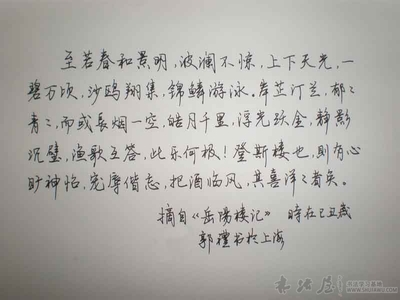 至若春和景明，波澜不惊，上下天光，一
碧万顷，沙鸥翔集，锦鳞游泳。岸芷汀兰，郁々
青々，而或长烟一空，皓月千里，浮光跃金，静影
沉璧，渔歌互答，此乐何极！登斯楼也，则有心
旷神怡，宠辱偕忘，把酒临风，其喜洋々者矣。
摘自《岳陽楼记》 時在己丑歲
郭禮书於上海
书法学习基地
WWW.SHUFAWU.COM